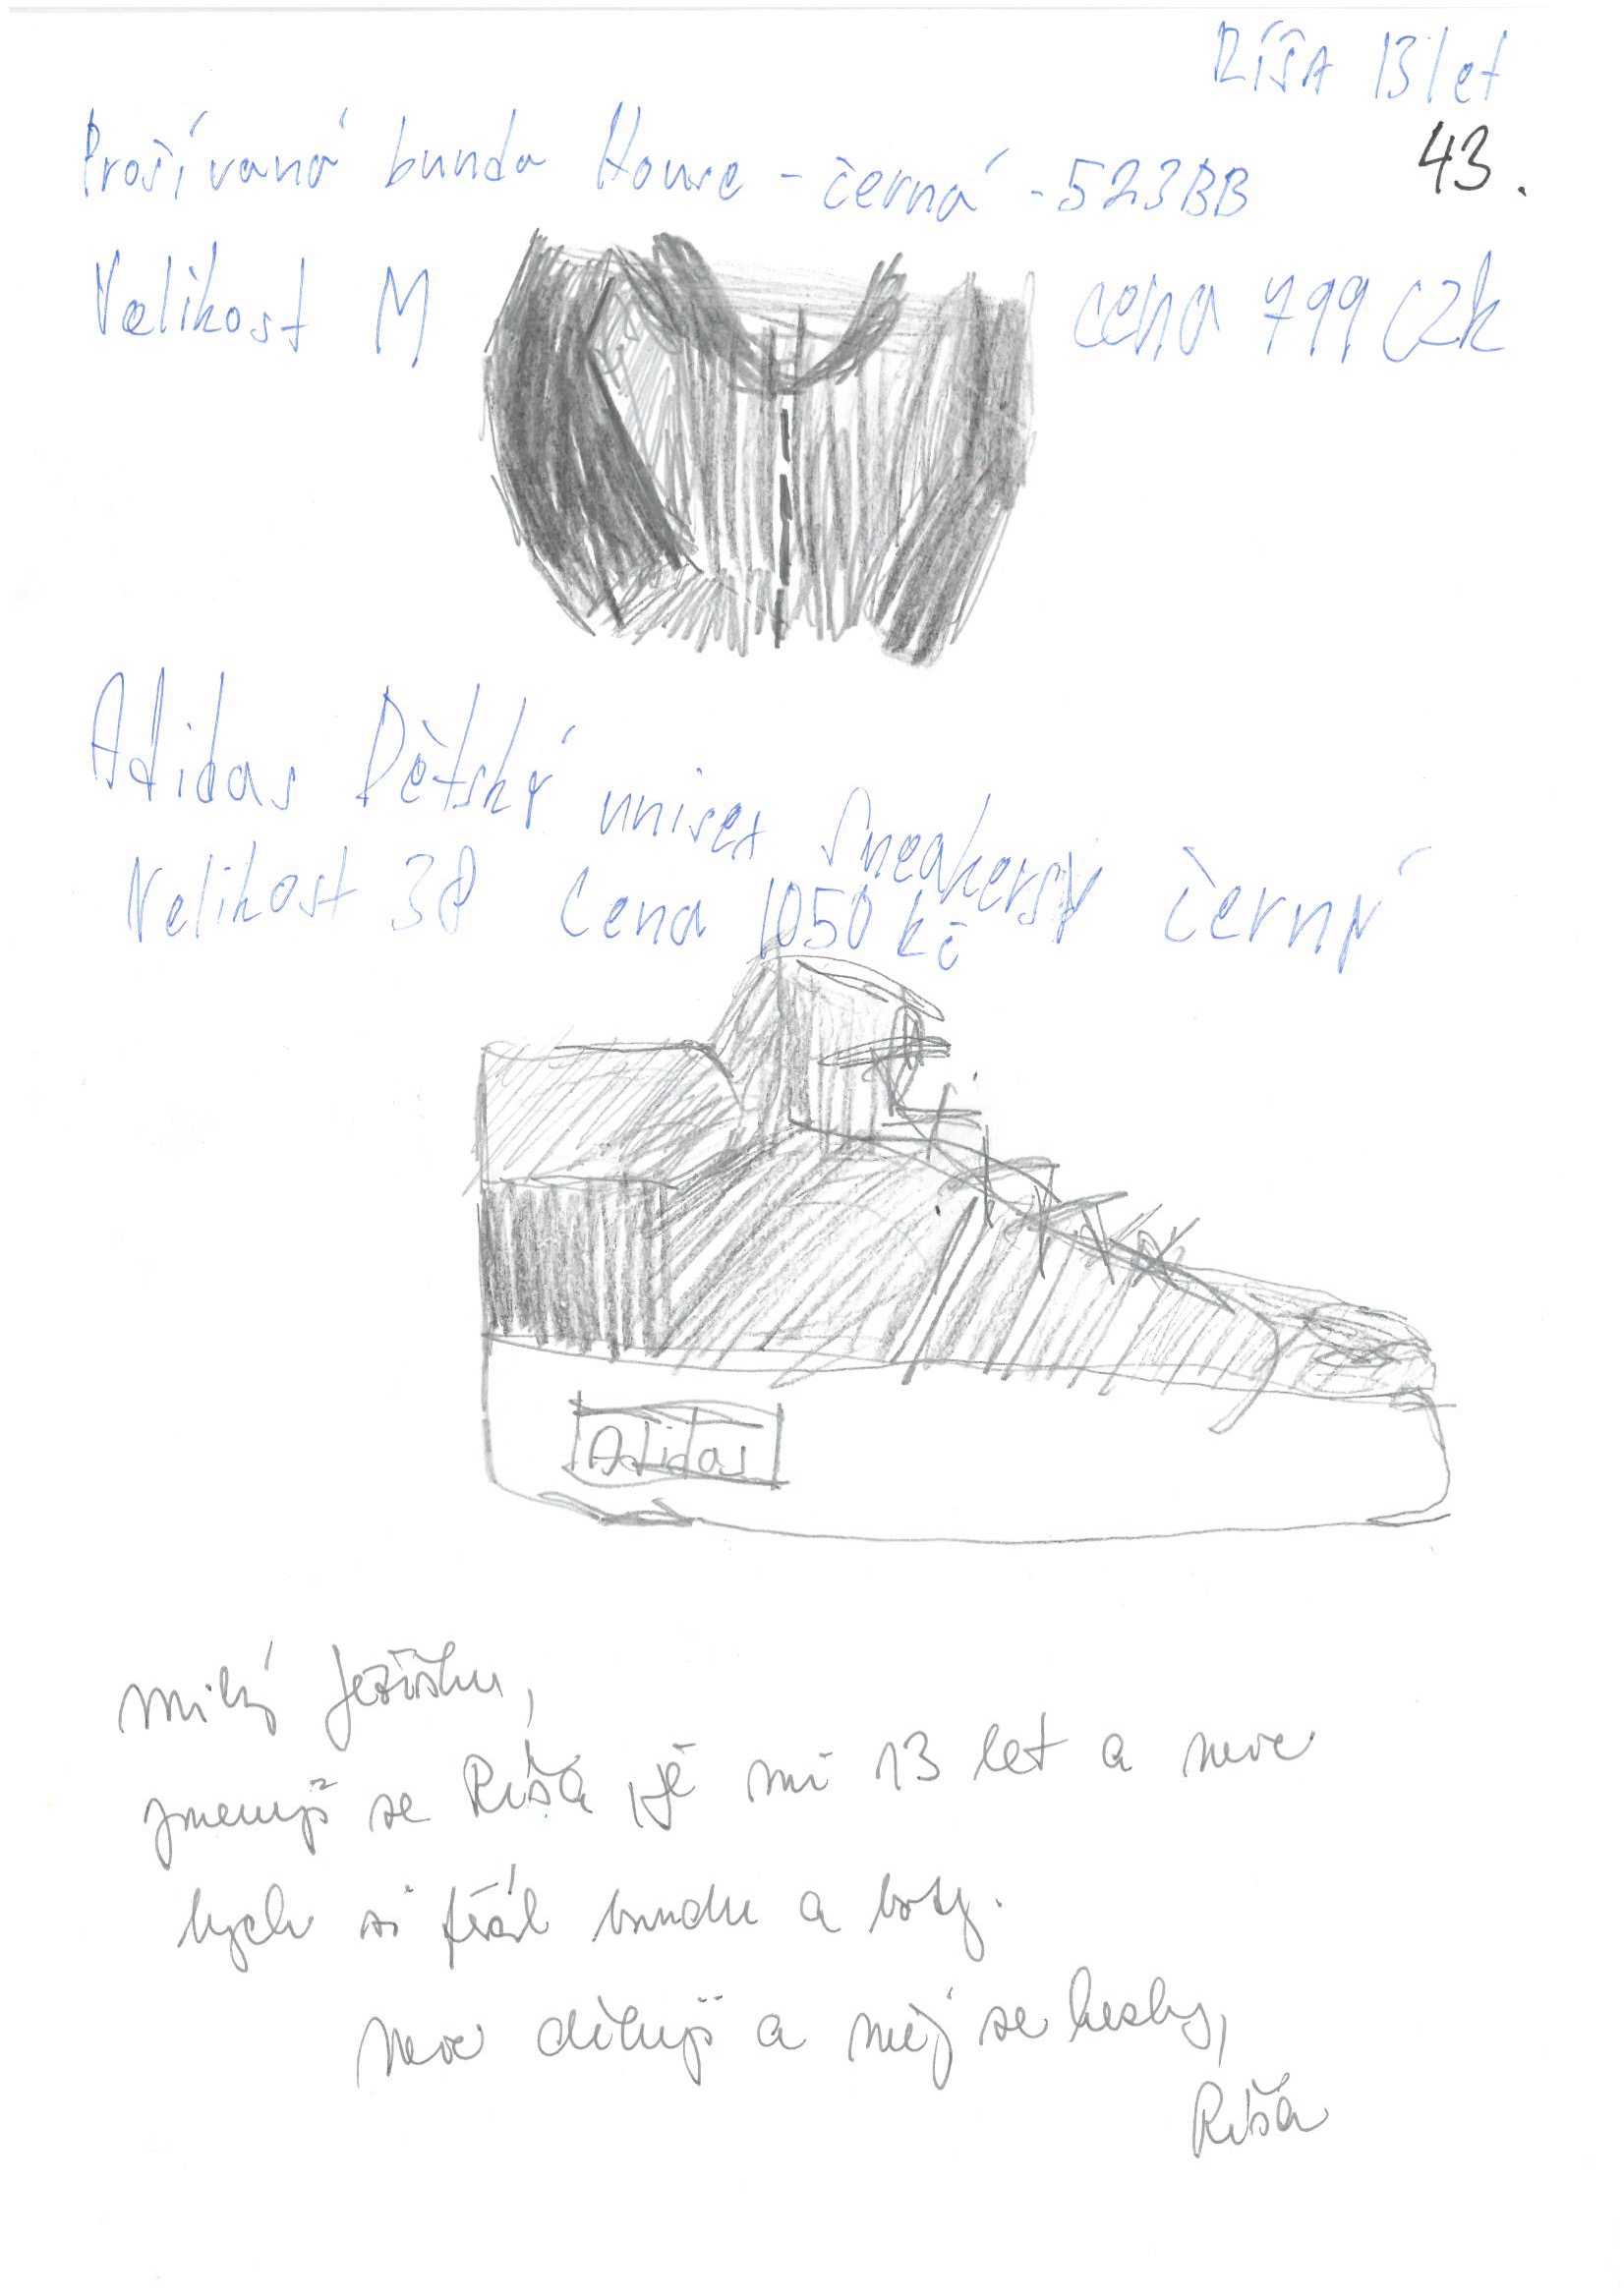 Ríša 13 let
43.
Prošívaná bunda House - černá - 523BB
Velikost M
cena 799 CZk
Adidas Dětský unisex Sneakersy černý
Velikost 38 Cena 1050 kč
Adidas
Milý Ježíšku,
jmenuji se Ríša je mi 13 let a moc
bych si přál bundu a boty.
Moc děkuji a měj se hezky,
Ríša